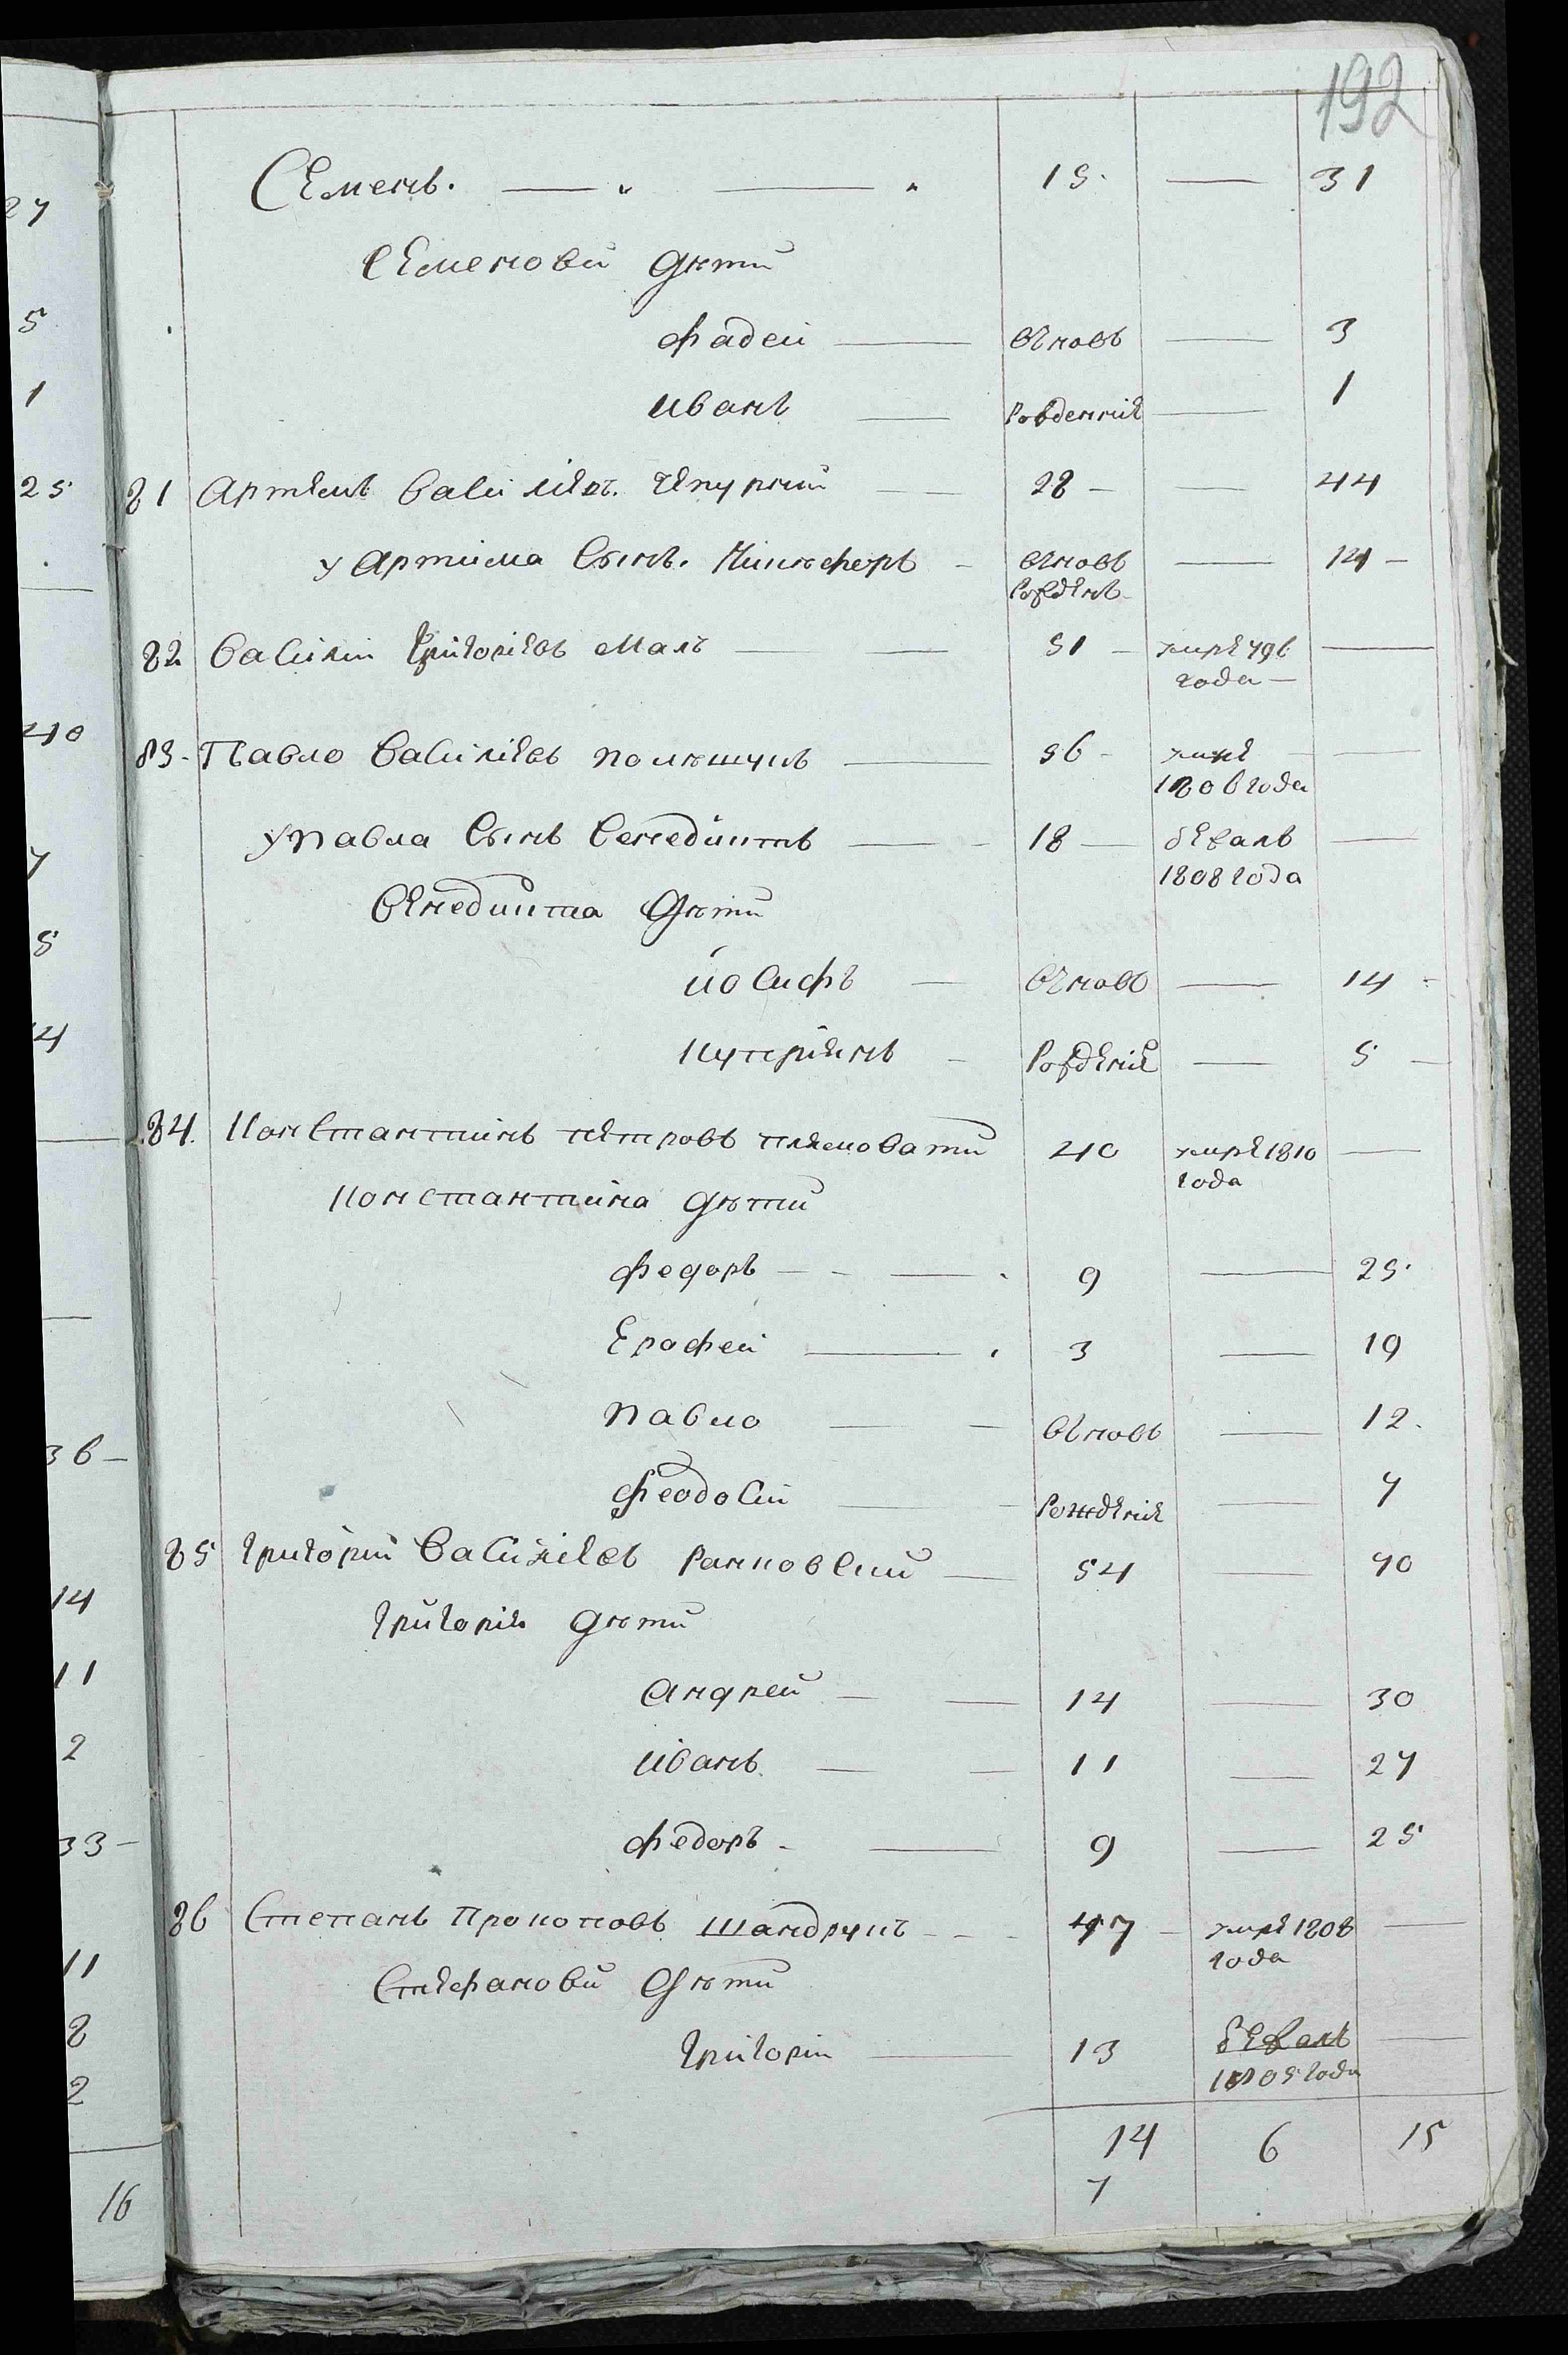 192
Семенъ. 15 31
Семенови дѣти
Фадей вновъ 3
Иванъ рожденній 1
81 Артемъ Василіевъ Чепурний 28 44
у Артима сынъ Никифоръ вновъ 14
рожденъ
82 Василій Григоріевъ Маль 51 умре 796
года
83 Павло Василіевъ Полѣщукъ 56 умре
1806 года
у Павла сынъ Бенедиктъ 18 бежалъ
1808 года
Венедикта дѣти
Иосифъ вновъ 14
Купріянъ рожденіе 5
84. Константинъ Петровъ Плековати 40 умре 1810
года
Константина дѣти
Федоръ 9 25
Ерофей 3 19
Павло вновъ 12
Феодосій рожденіе 7
85 Григорій Василіевъ Ранковский 54 70
Григорія дѣти
Андрей 14 30
Иванъ 11 27
Федоръ 9 25
86 Степанъ Прокоповъ Шандрукъ 47 умре 1808
года
Стефанови дѣти
Григорій 13 бежалъ
1805 года
14 6 15
7
27
5
1
25
40
7
5
14
36
14
11
2
33
11
8
2
16